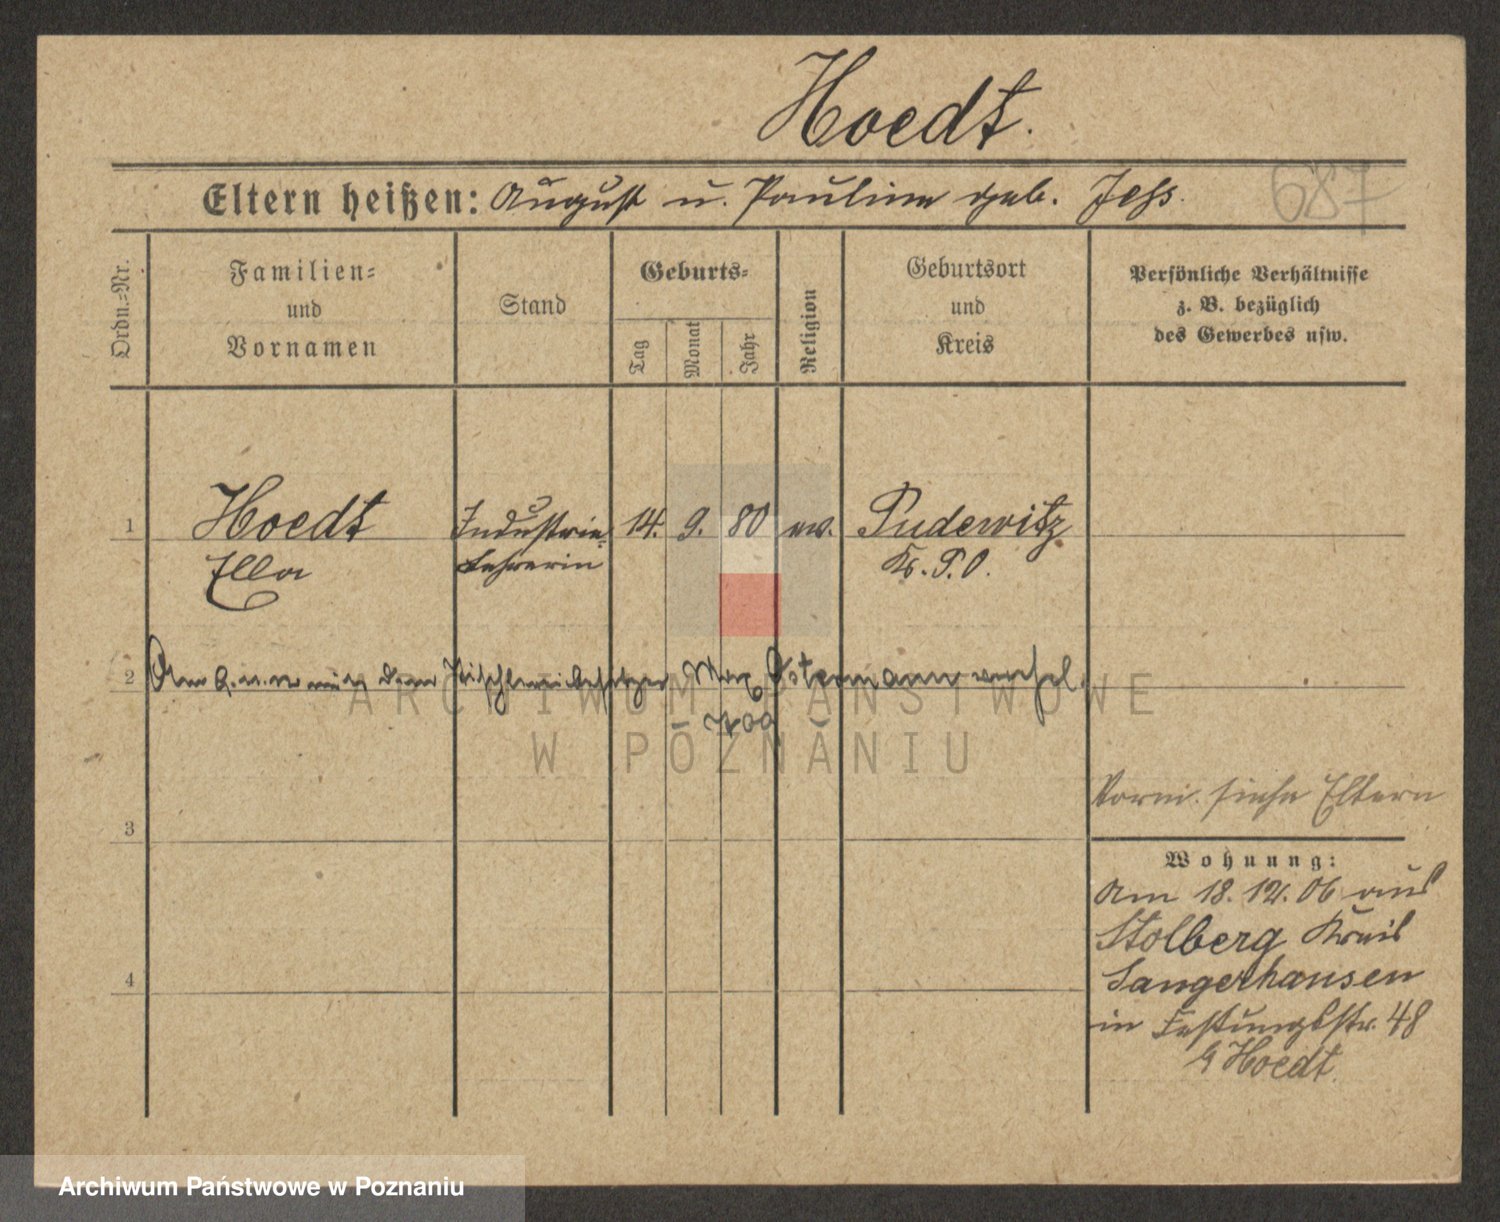 Hoedt.
Eltern heißen: August u. Pauline geb. Jess.
687
Ordn.=Nr.
Familien=
und
Vornamen
Stand
Geburts=
Tag
Monat
Jahr
Religion
Geburtsort
und
Kreis
Persönliche Verhältnisse
z. B. bezüglich
des Gewerbes usw.
1
Hoedt
Ella
Industrie=
Lehrerin
14. 9. 80
ev.
Pudewitz
Kr. P. O.
2
Am mit dem Tischlereibesitzer Max Ostermann verehel.
3
4
Vorm. siehe Eltern
Wohnung:
Am 18. 12. 06 aus
Stolberg Kreis
Sangerhausen
in Festungsstr. 48
b Hoedt.
ARCHIWUM PAŃSTWOWE
W POZNANIU
Archiwum Państwowe w Poznaniu